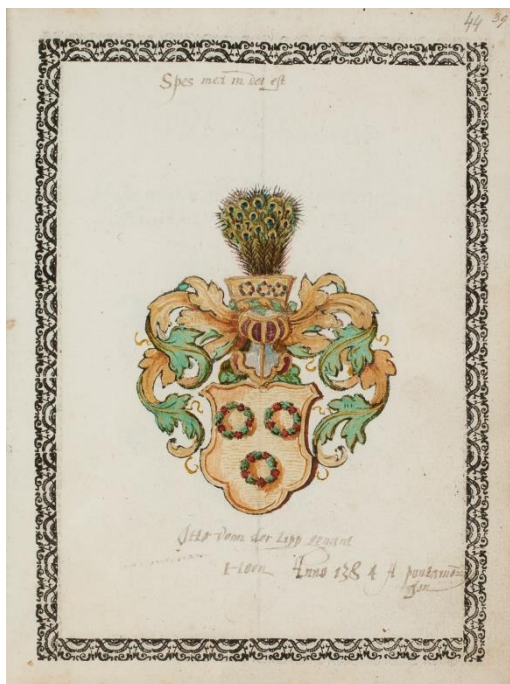 44 39
Spes mea in deo est
Otto vonn der Lipp genant
Hoen Anno 1584 A